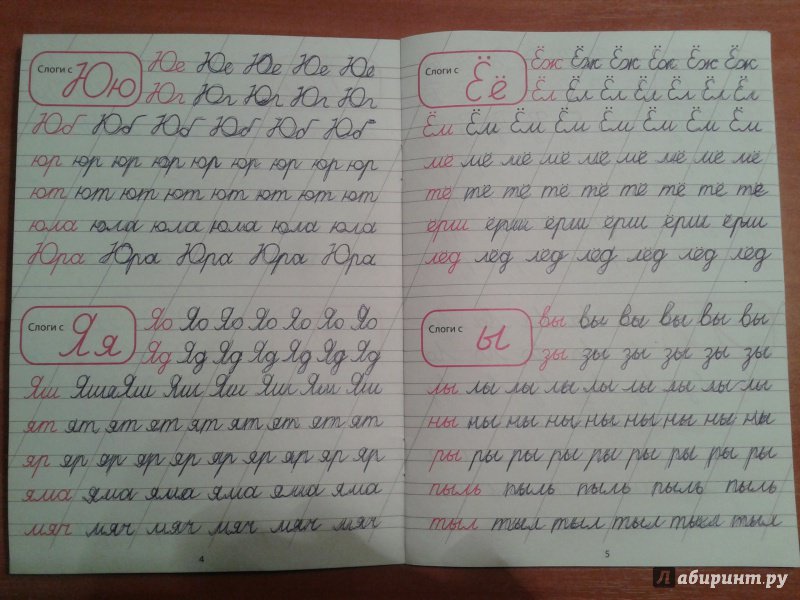 Слоги с Юю
Юе Юе Юе Юе Юе
Юг Юг Юг Юг Юг
Юб Юб Юб Юб Юб Юб
юр юр юр юр юр юр юр юр юр
ют ют ют ют ют ют ют ют
юла юла юла юла юла юла
Юра Юра Юра Юра Юра
Слоги с Яя
Яо Яо Яо Яо Яо Яо Яо
Яд Яд Яд Яд Яд Яд Яд
Яш Яша Яш Яш Яш Яш Яш Яш
ят ят ят ят ят ят ят ят ят
яр яр яр яр яр яр яр яр яр яр
яма яма яма яма яма яма
мяч мяч мяч мяч мяч мяч
4
Слоги с Ёё
Ёж Ёж Ёж Ёж Ёж Ёж
Ёл Ёл Ёл Ёл Ёл Ёл Ёл
Ём Ём Ём Ём Ём Ём Ём Ём
мё мё мё мё мё мё мё мё мё
тё тё тё тё тё тё тё тё тё
ёрш ёрш ёрш ёрш ёрш ёрш
лёд лёд лёд лёд лёд лёд лёд
Слоги с ы
вы вы вы вы вы вы
зы зы зы зы зы зы
лы лы лы лы лы лы лы лы лы
ны ны ны ны ны ны ны ны ны
ры ры ры ры ры ры ры ры ры
пыль пыль пыль пыль пыль
тыл тыл тыл тыл тыл тыл
5
Лабиринт.ру